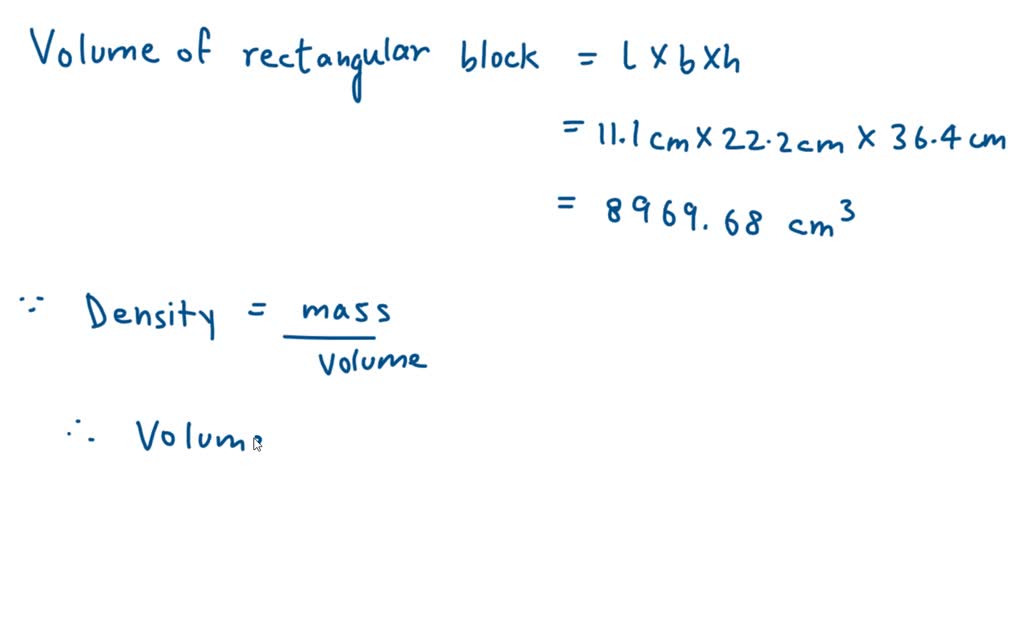 Volume of rectangular block = l × b × h
= 11.1 cm × 22.2 cm × 36.4 cm
= 8969.68 cm³
∵ Density = mass / Volume
∴ Volume